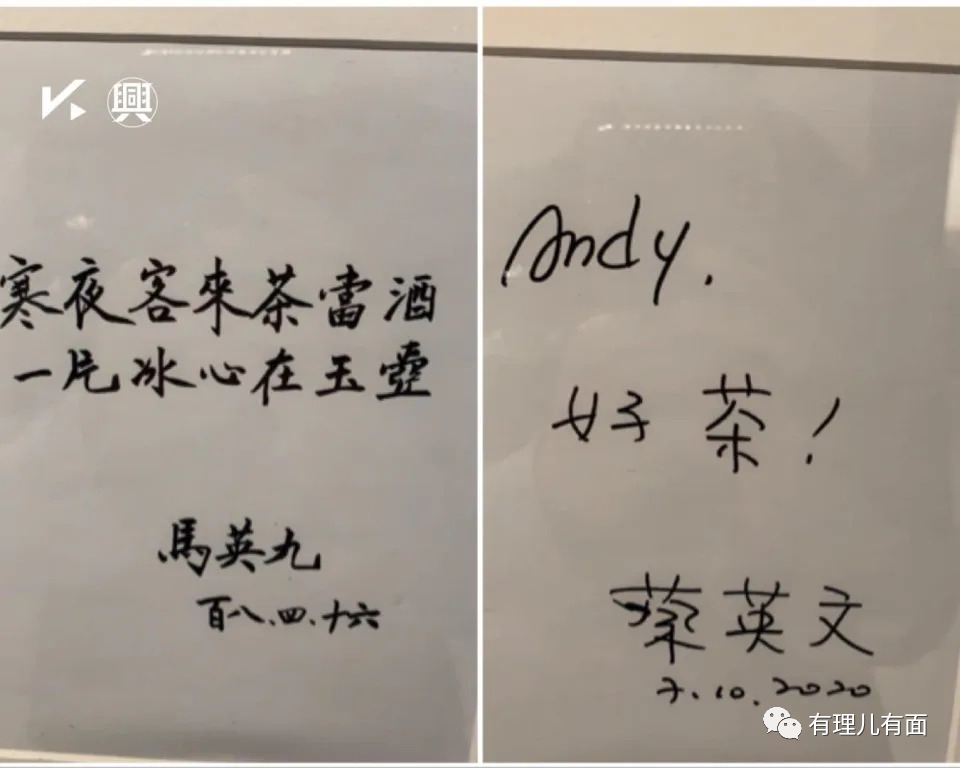 興
寒夜客來茶當酒
一片冰心在玉壺
馬英九
百八.四.十六
Andy.
好茶!
蔡英文
7.10.2020
有理儿有面